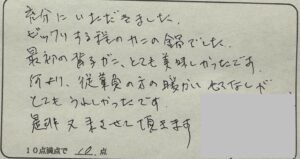 充分にいただきました。
ビックリする程のカニの量でした。
最初の背子がに、とても美味しかったです。
何より、従業員の方の暖かいもてなしが
とてもうれしかったです。
是非又来させて頂きます
10点満点で 10 点